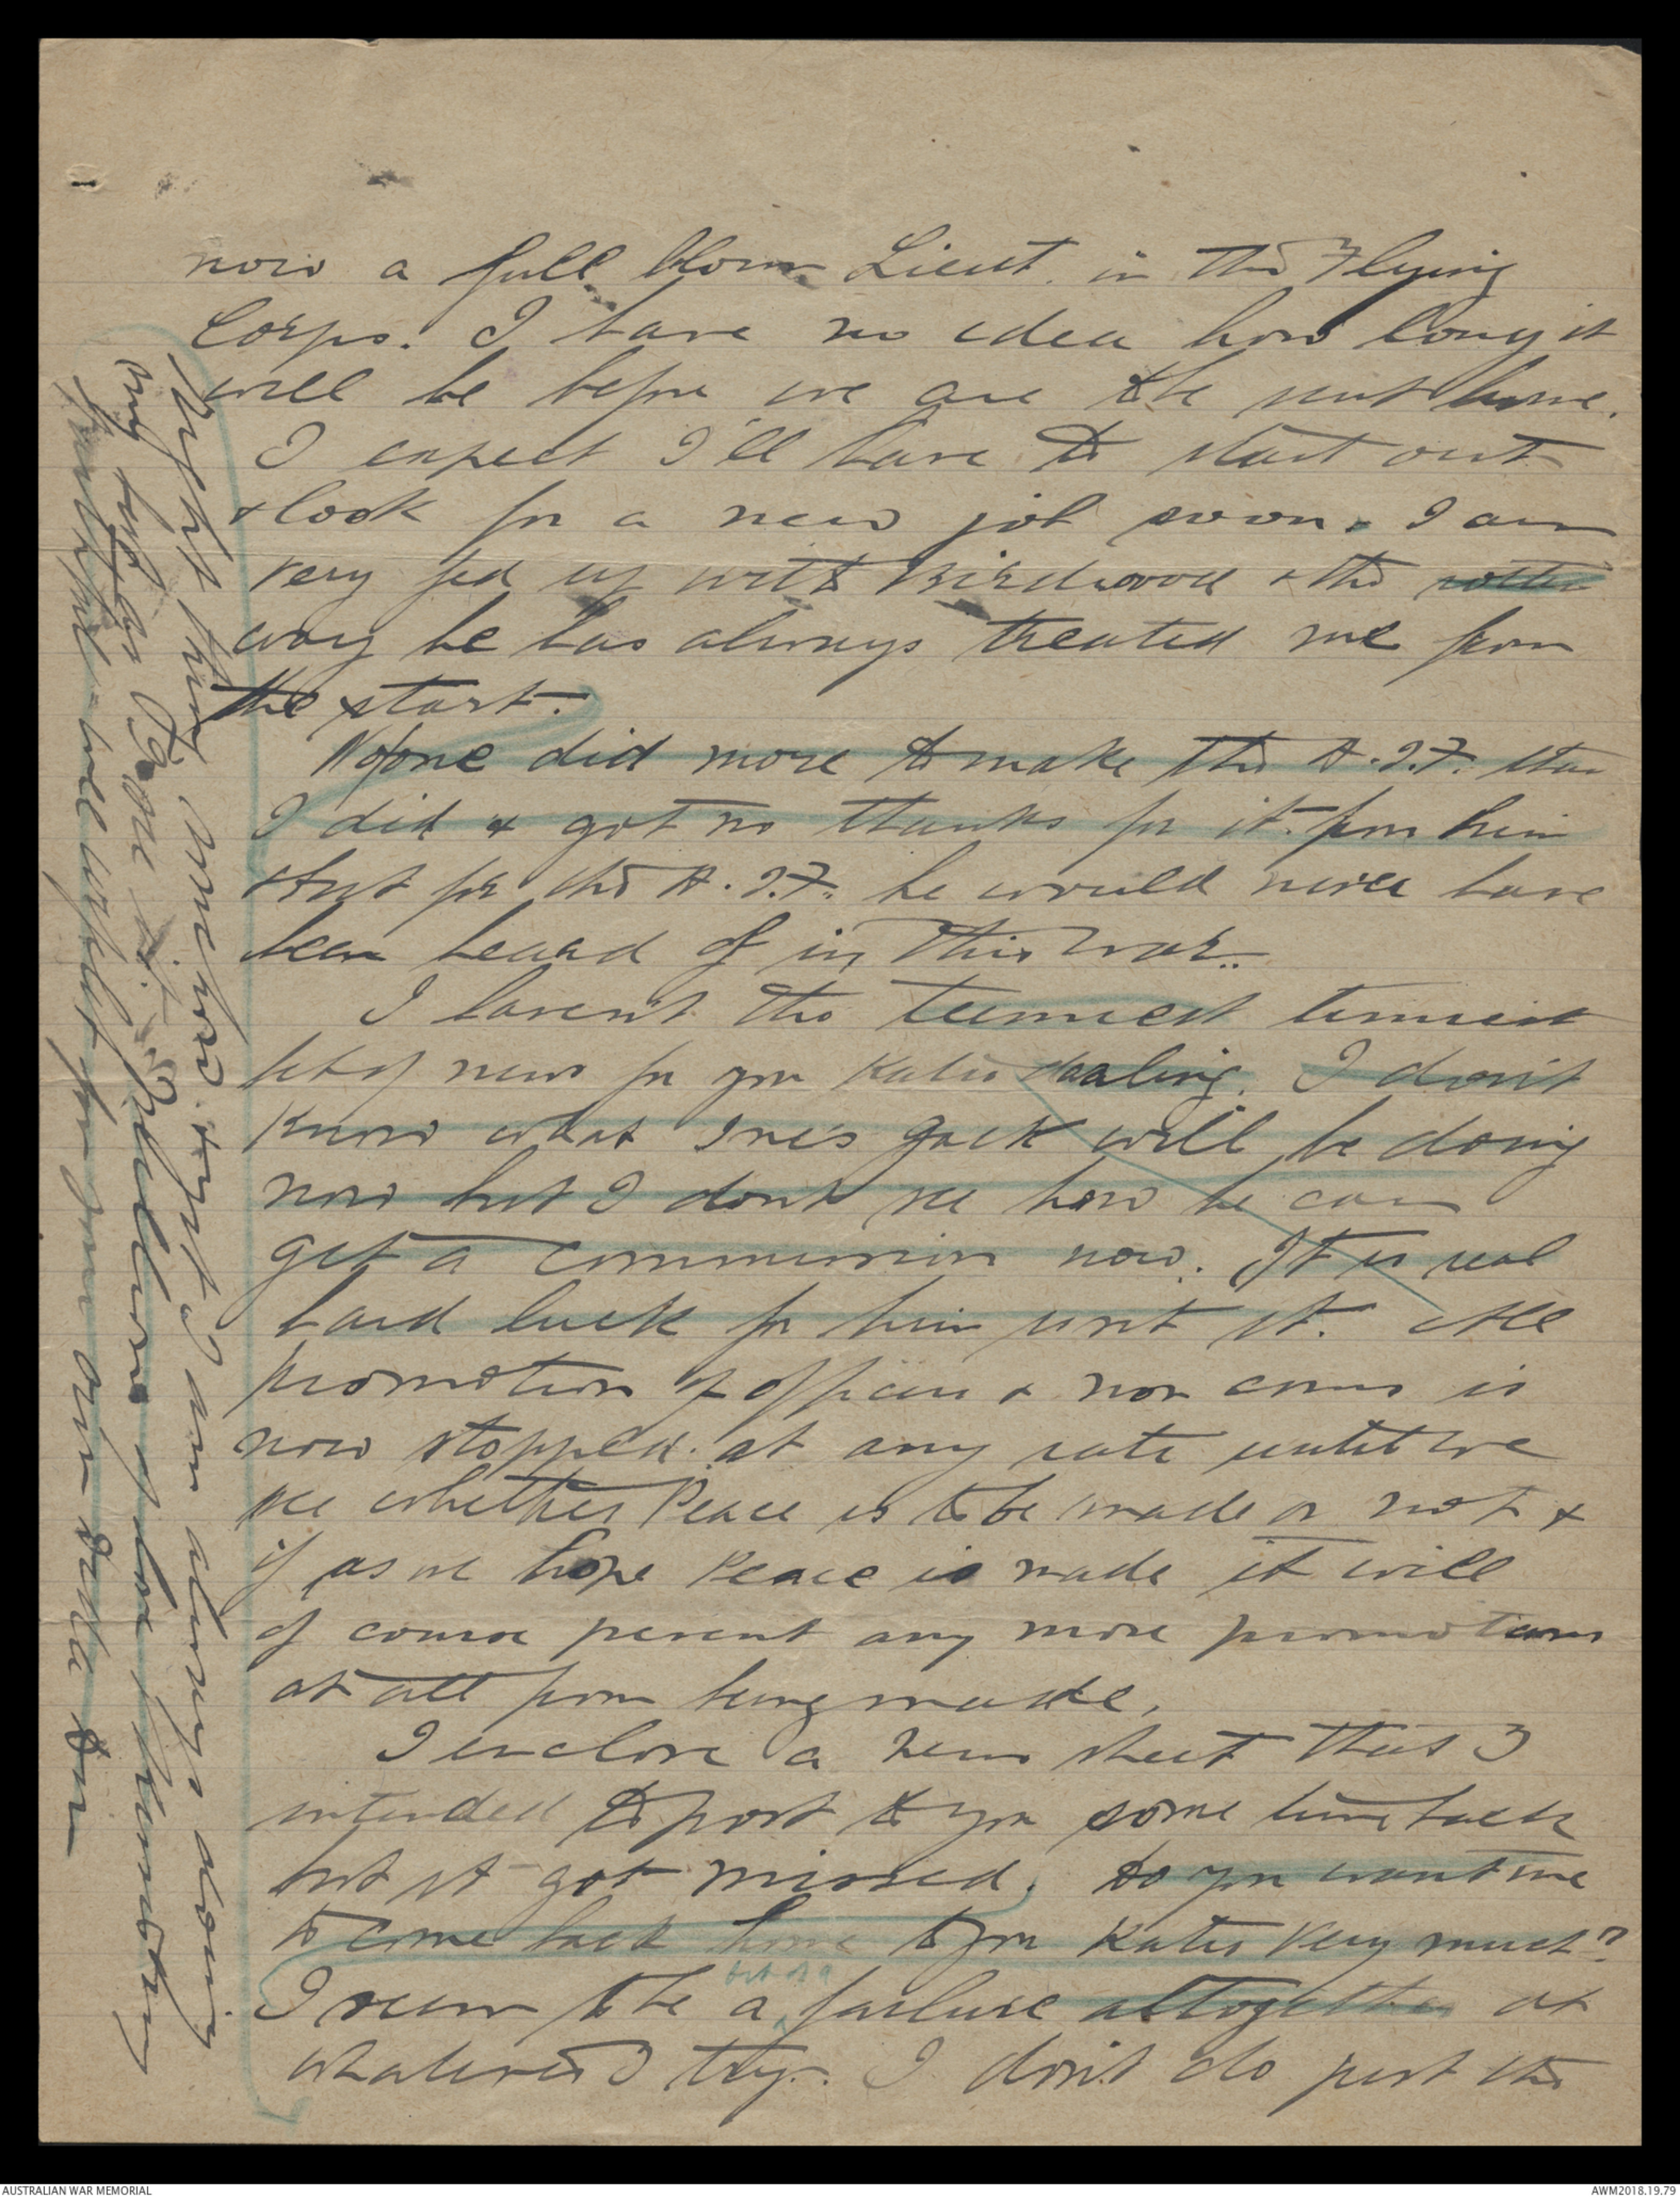 now a full blown Lieut. in the Flying
Corps. I have no idea how long it
will be before we are the sent home.
I expect I'll have to start out
& look for a new job soon. I am
very fed up with Birdwood & the rotten
way he has always treated me from
the start.
No one did more to make the A.I.F. than
I did & got no thanks for it from him
& but for the A.I.F. he would never have
been heard of in this war.
I haven't the teeniest teeniest
bit of news for you Katie darling. I don't
know what Ine's Jack will be doing
now but I don't see how he can
get a commission now. It is real
hard luck for him isn't it. All
promotion of officers & non coms is
now stopped at any rate until we
see whether Peace is to be made or not &
if as we hope Peace is made it will
of course prevent any more promotions
at all from being made.
I enclose a news sheet that I
intended to post to you some time back
but it got missed. Do you want me
to come back home to you Katie very much?
bit of a
I seem to be a failure altogether at
whatever I try. I don't do just the
right thing somehow & yet I am always doing
my best,
own